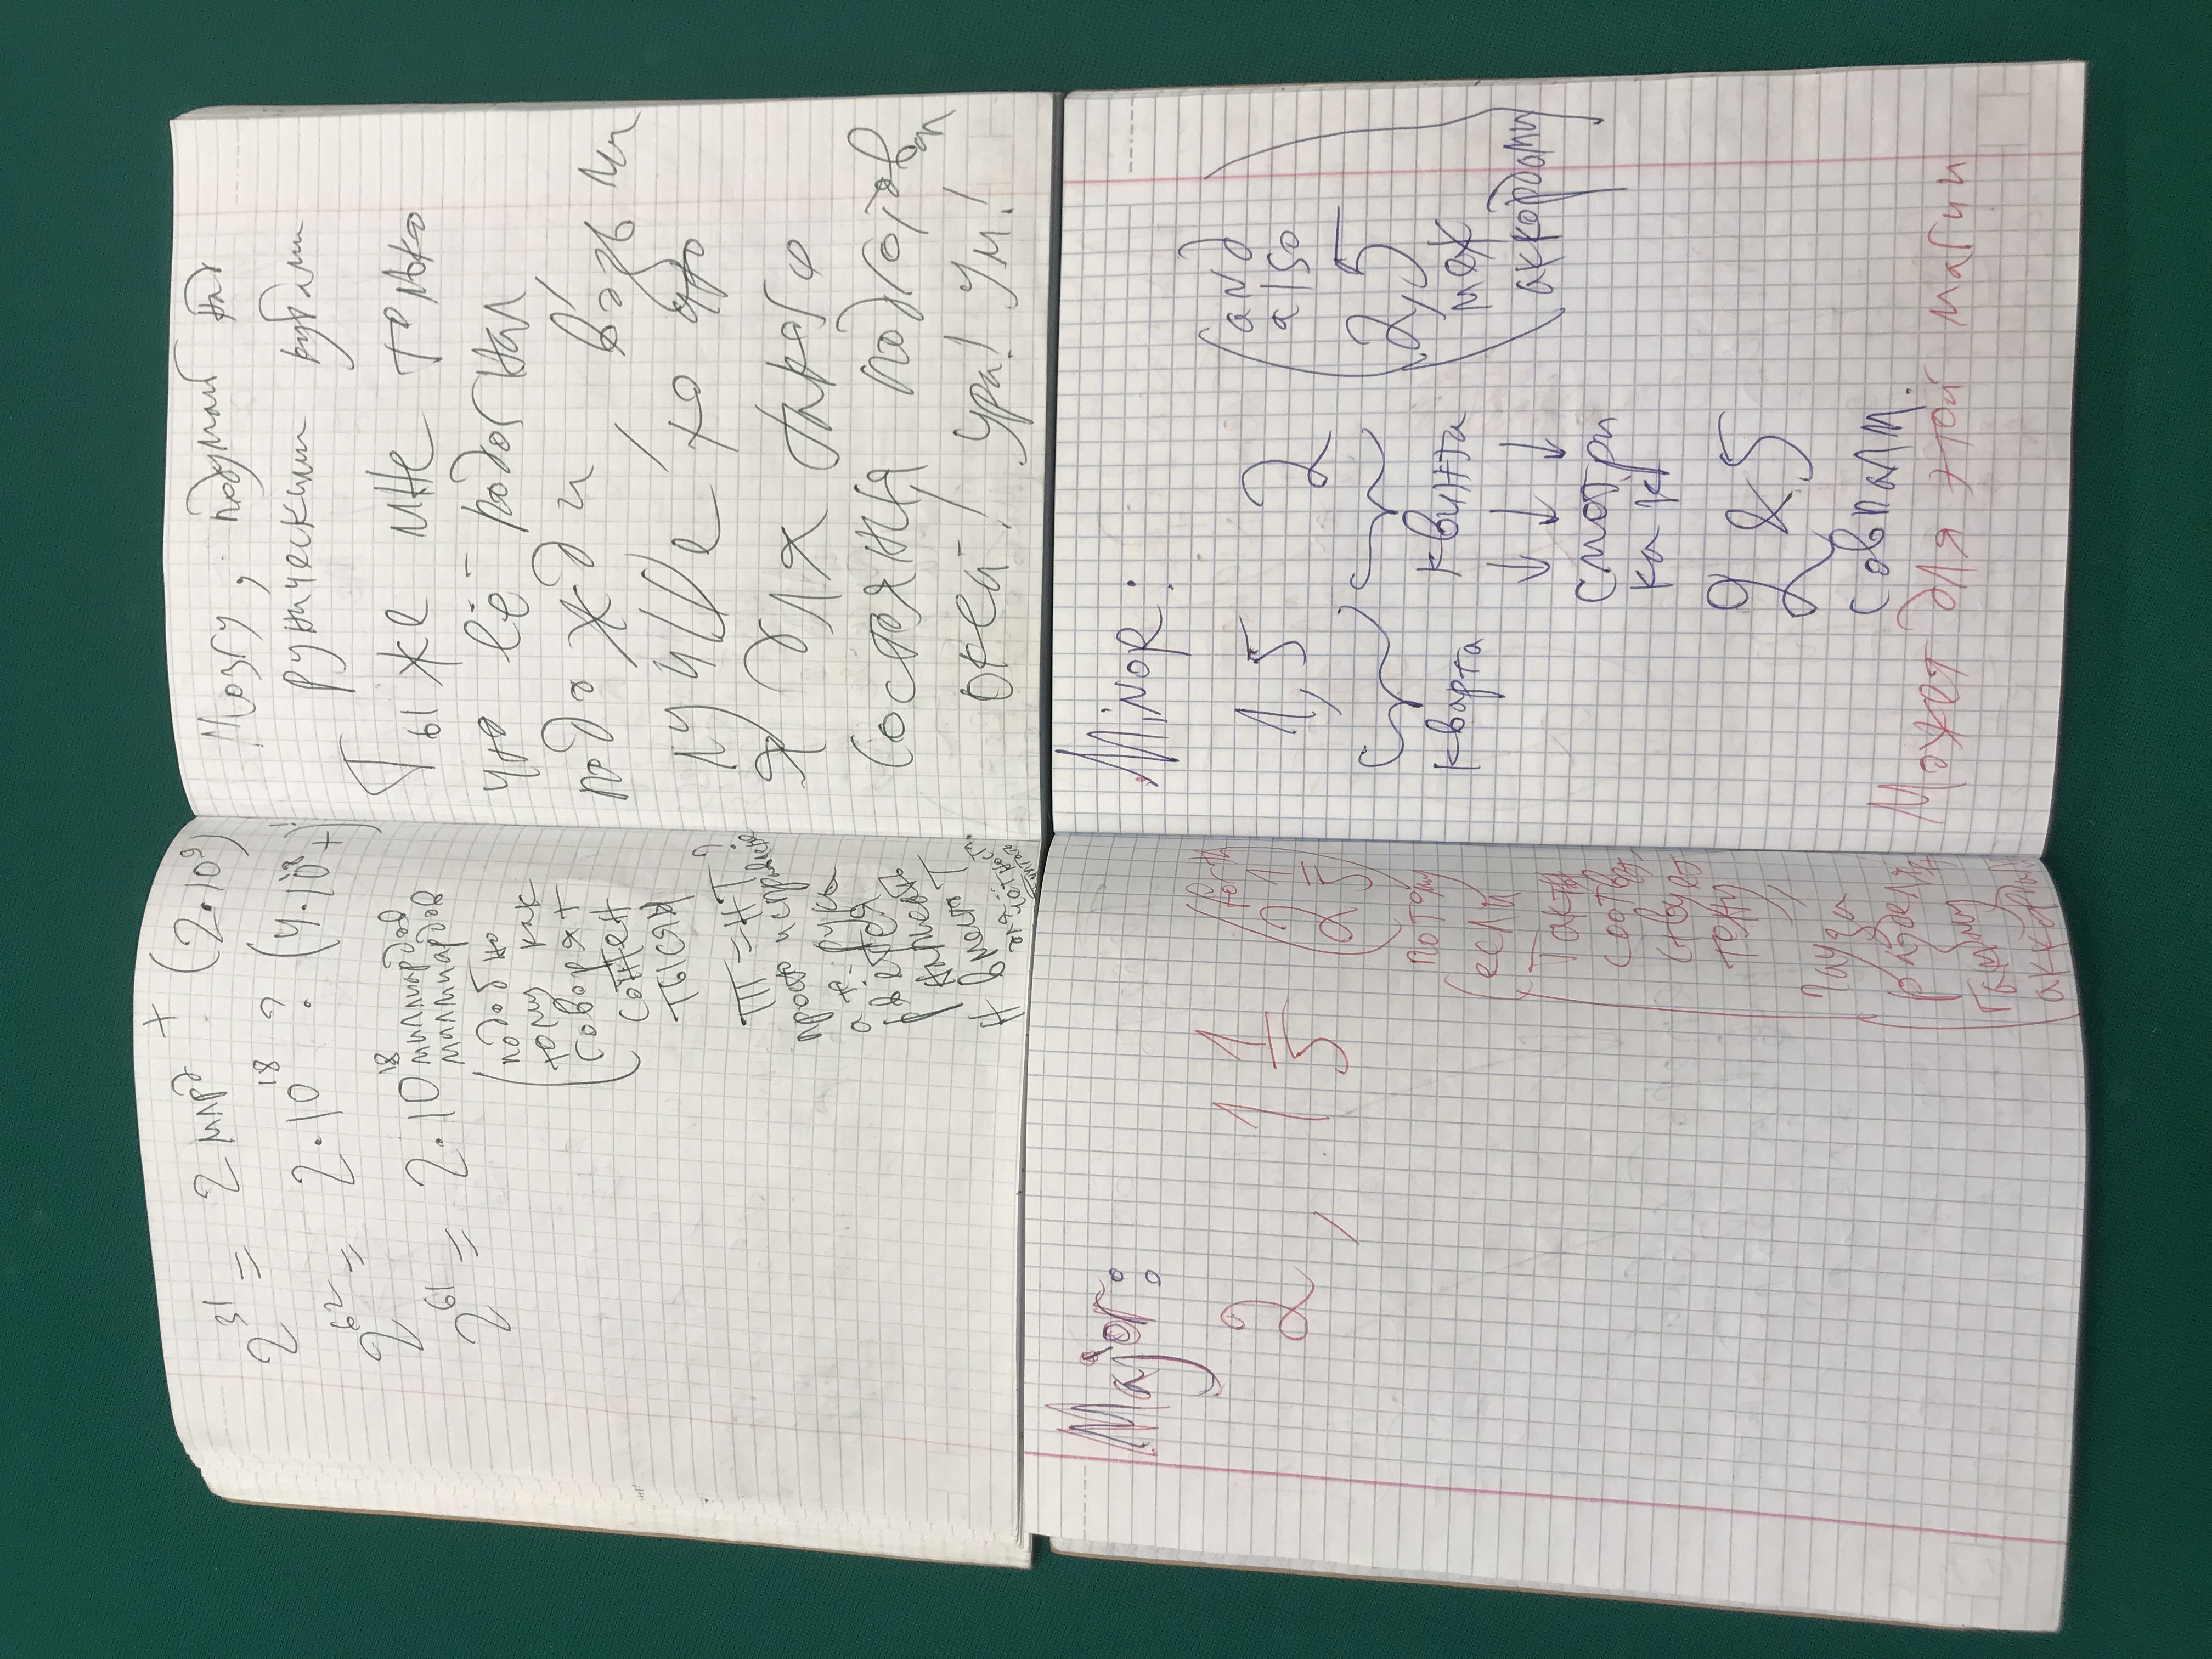 2³¹ = 2 млрд + (2·10⁹)
2⁶² = 2·10¹⁸ ? (4·10¹⁸+)
2⁶¹ = 2·10¹⁸ миллиардов
миллиардов
(подобно
тому как
говорят
сотен
тысяч
ТТ = НТ?
просто исправлено
а то рука
рвётся
написать
Н вместо Т
для
чётности.
Мозгу, подумай над
руническими
Ты же мне только
что её подогнал
подожди, возьми
лучше то что
я для такого
состояния подготовил
окей! Ура! Ум!
Major:
2, 1 1/5 (
2 1/5)
потому
(если
такты
соответ-
ствует
тону,
пауза
разделяет
гамму
аккорды
Minor:
1,5 2 (and
also
2,5
меж
аккордами)
кварта квинта
↓ ↓ ↓
смотри
как
2 & 5
совпали.
Может для этой магии